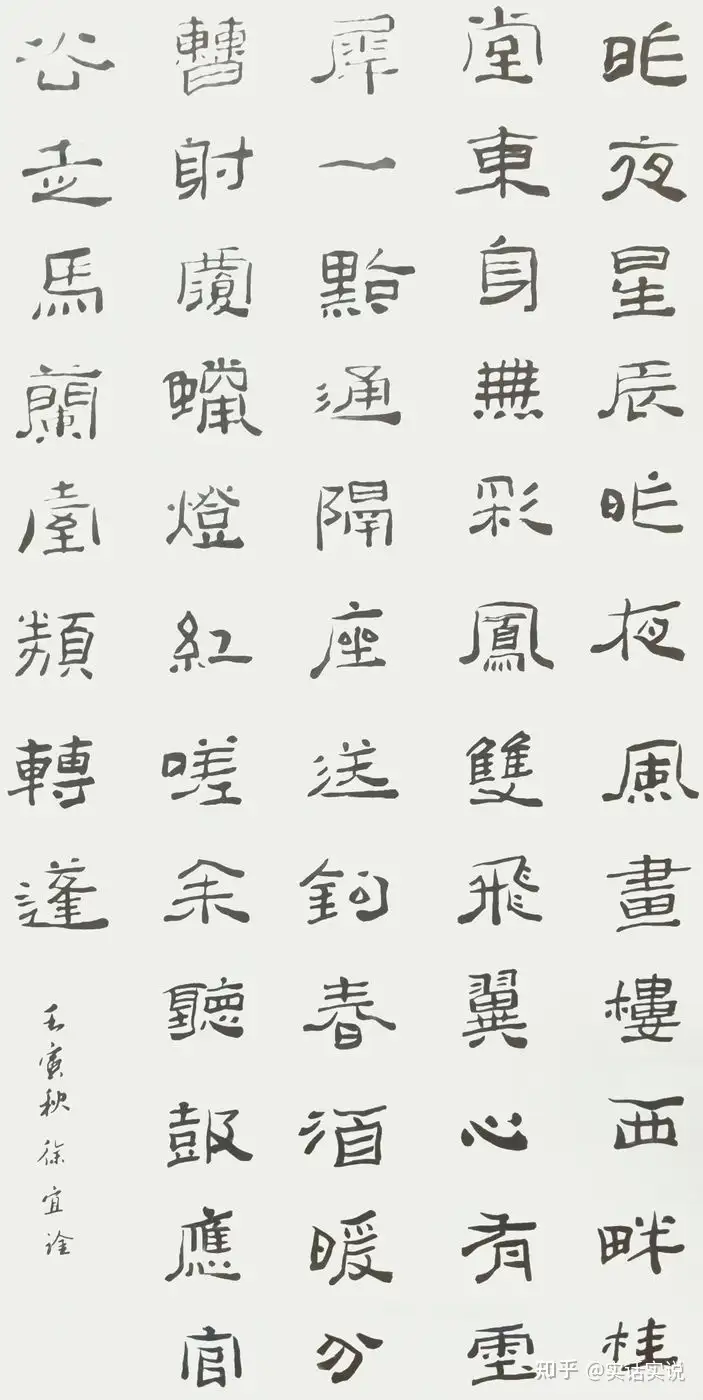 昨夜星辰昨夜風畫樓西畔桂
堂東身無彩鳳雙飛翼心有靈
犀一點通隔座送鉤春酒暖分
曹射覆蠟燈紅嗟余聽鼓應官
公走馬蘭臺類轉蓬
壬寅秋 徐宜詮
知乎 @实话实说